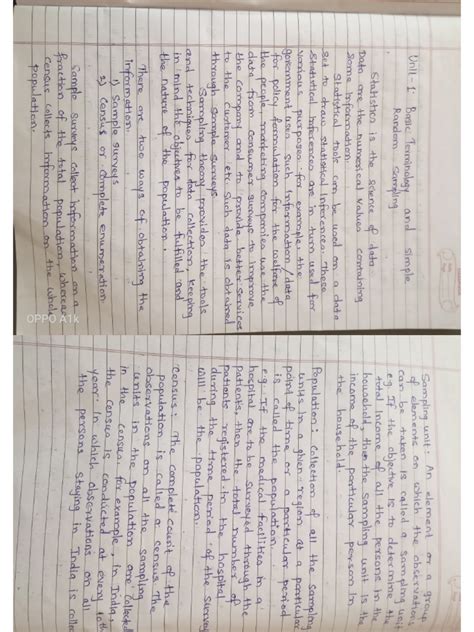 Unit-1 Basic Terminology and simple
Random Sampling
Statistics is the science of data.
Data are the numerical values containing
some information.
Statistical tools can be used on a data
set to draw statistical inferences. These
statistical inferences are in turn used for
various purposes. for example, the
government uses such information/data
for policy formulation for the welfare of
the people, marketing companies use the
data from consumer surveys to improve
the company and to provide better services
to the customer, etc. such data is obtained
through sample surveys.
Sampling theory provides the tools
and techniques for data collection, keeping
in mind the objectives to be fulfilled and
the nature of the population.
There are two ways of obtaining the
information.
1) Sample surveys
2) Census or complete enumeration
Sample surveys collect information on a
fraction of the total population, whereas
census collects information on the whole
population.
OPPO A1k
Sampling unit: An element or a group
of elements on which the observations
can be taken is called a sampling unit
e.g. If the objective is to determine the
total income of all the persons in the
household, then the sampling unit is the
income of the particular person in
the household.
Population: Collection of all the sampling
units in a given region at a particular
point of time or a particular period
is called the population.
e.g. If the medical facilities in a
hospital are to be surveyed through the
patients, then the total number of
patients registered in the hospital
during the time period of the survey
will be the population.
Census: The complete count of the
population is called a census. The
observations on all the sampling
units in the population are collected
in the census. for example, in India,
the census is conducted at every tenth
year in which observations on all
the persons staying in India is collec